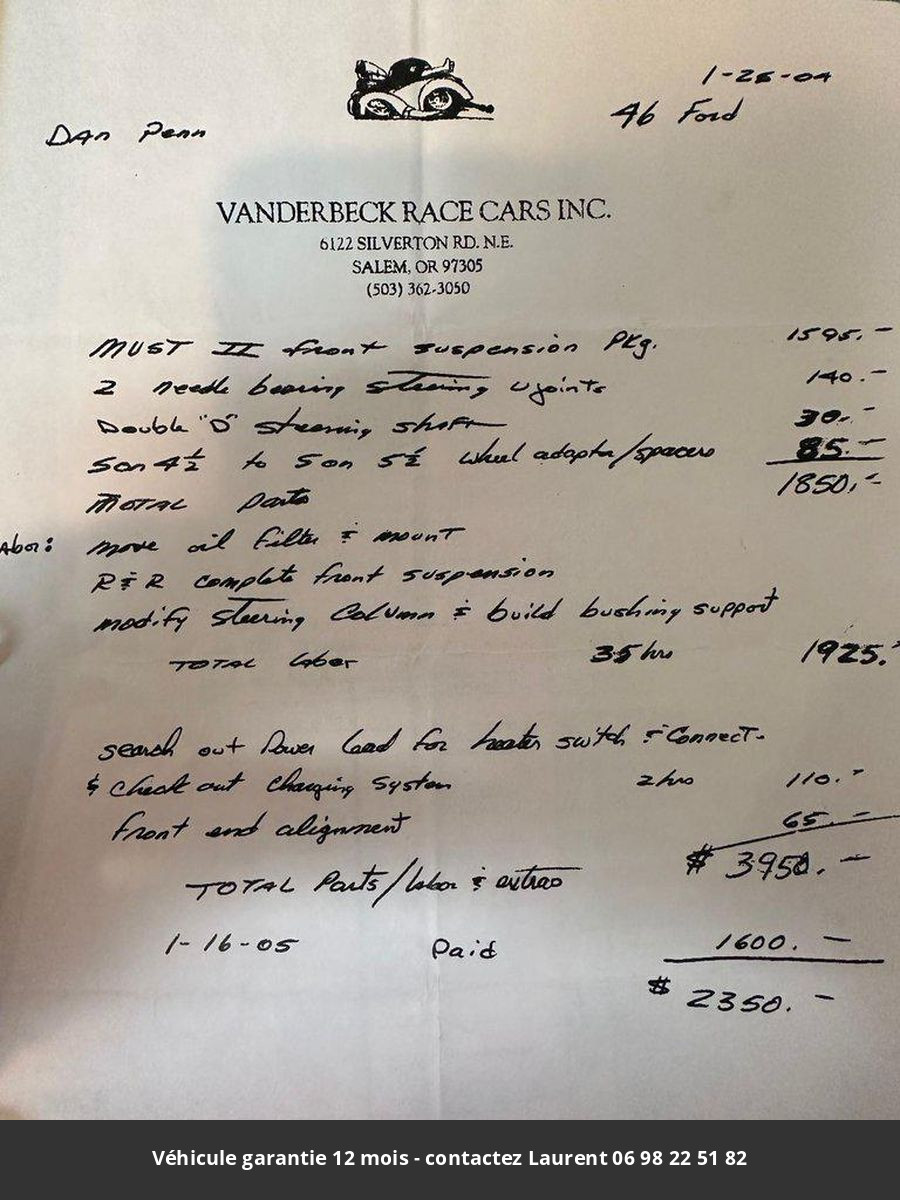 1-26-04
46 Ford
Dan Penn
VANDERBECK RACE CARS INC.
6122 SILVERTON RD. N.E.
SALEM, OR 97305
(503) 362-3050
MUST II front suspension Pkg. 1595.-
2 needle bearing steering ujoints 140.-
Double "D" steering shaft 30.-
5 on 4 1/2 to 5 on 5 1/2 wheel adapter/spacers 85.-
TOTAL parts 1850.-
Labor: move oil filter & mount
R & R complete front suspension
modify steering Column & build bushing support
TOTAL labor 35 hrs 1925.-
search out power lead for heater switch & Connect-
& check out charging system 2 hrs 110.-
front end alignment 65.-
TOTAL Parts/labor & extras $ 3950.-
1-16-05 Paid 1600.-
$ 2350.-
Véhicule garantie 12 mois - contactez Laurent 06 98 22 51 82